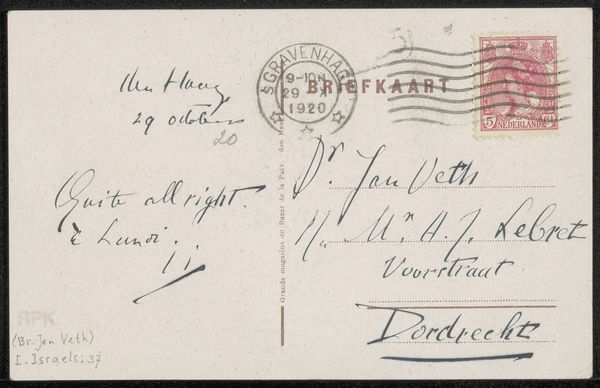 den Haag
29 october
20
Quite all right.
à Lundi.
I I.
RPK
(Br. Jan Veth)
I. Israels: 37
'S GRAVENHAGE
9-10
29 X
1920
BRIEFKAART
5
NEDERLAND
Grands magasins du Bazar de la Paix, den Haag
Dr. Jan Veth
Mr. A. J. Lebret
Voorstraat
Dordrecht